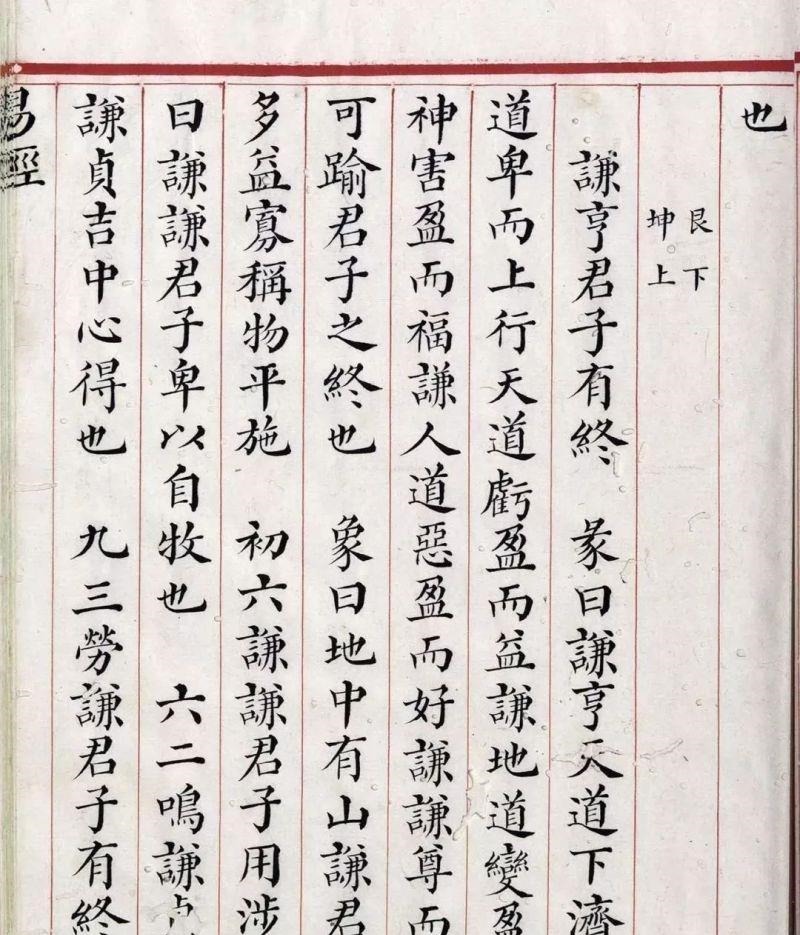 也
艮下
坤上
謙亨君子有終 彖曰謙亨天道下濟
道卑而上行天道虧盈而益謙地道變盈
神害盈而福謙人道惡盈而好謙謙尊而
可踰君子之終也 象曰地中有山謙君
多益寡稱物平施 初六謙謙君子用涉
曰謙謙君子卑以自牧也 六二鳴謙
謙貞吉中心得也 九三勞謙君子有終
易經